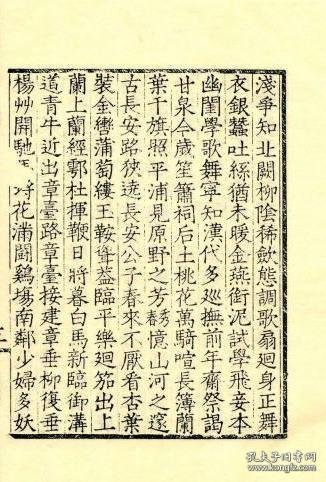 淺爭知北闕柳陰稀歛態調歌扇迴身正舞
衣銀蠶吐絲猶未暖金燕銜泥試學飛妾本
幽閨學歌舞寧知漢代多巡撫前年齋祭謁
甘泉今歲笙簫祠后土桃花萬騎喧長簿蘭
葉千旗照平浦見原野之芳憶山河之邃
古長安路狹遶長安公子春來不厭看杏葉
裝金轡蒲萄縷玉鞍聳蓋臨平樂廻笳出上
蘭上蘭經鄠杜揮鞭日將暮白馬新臨御溝
道青牛近出章臺路章臺接建章垂柳復垂
楊艸開馳花滿鬬鷄場南鄰少婦多妖
孔夫子旧書网